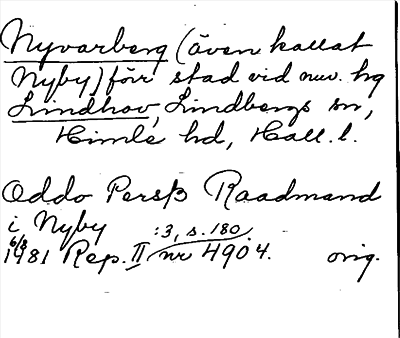 Nyvarberg (även kallat
Nyby) förr stad vid nuv. hg
Lindhov, Lindbergs sn,
Himle hd, Hall. l.
Oddo Persß Raadmand
i Nyby :3, s. 180,
6/8 1481 Rep. II nr 4904. orig.